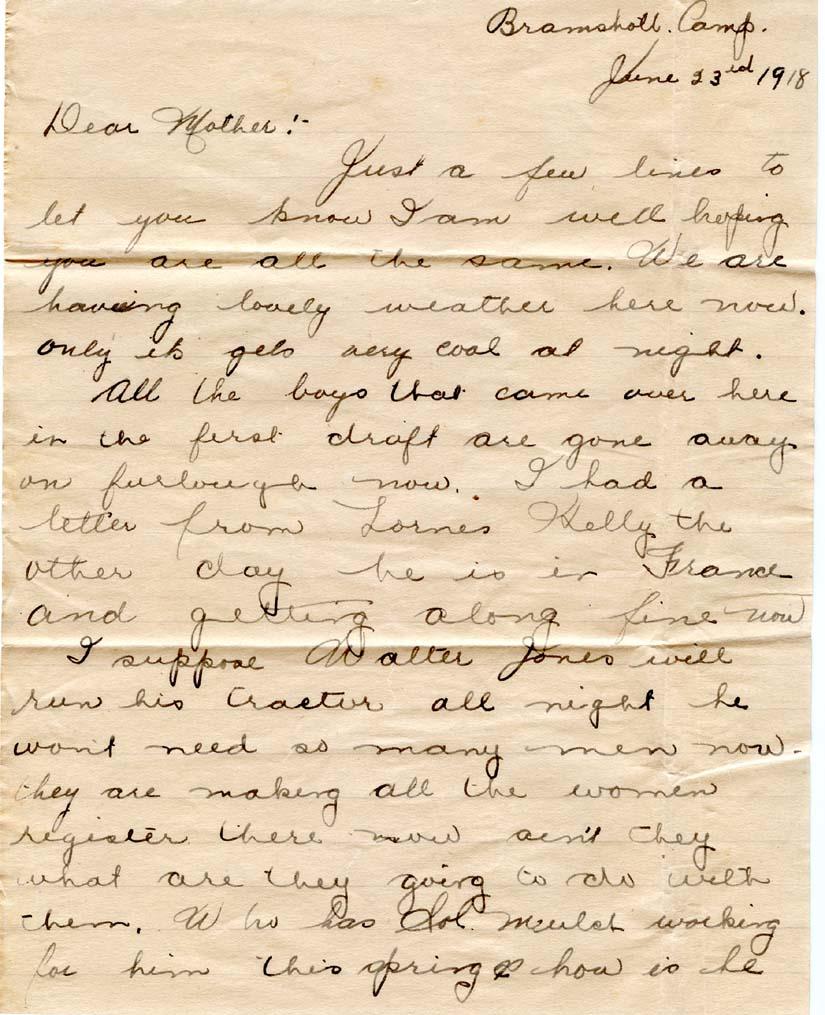 Bramshott. Camp.
June 23rd 1918
Dear Mother!-
Just a few lines to
let you know I am well hoping
you are all the same. We are
having lovely weather here now.
only it gets very cool at night.
All the boys that came over here
in the first draft are gone away
on furlough now. I had a
letter from Lornes Kelly the
other day he is in France
and getting along fine now
I suppose Walter Jones will
run his tractor all night he
wont need so many men now-
they are making all the women
register there now ain't they
what are they going to do with
them. Who has Sol. working
for him this spring & how is he